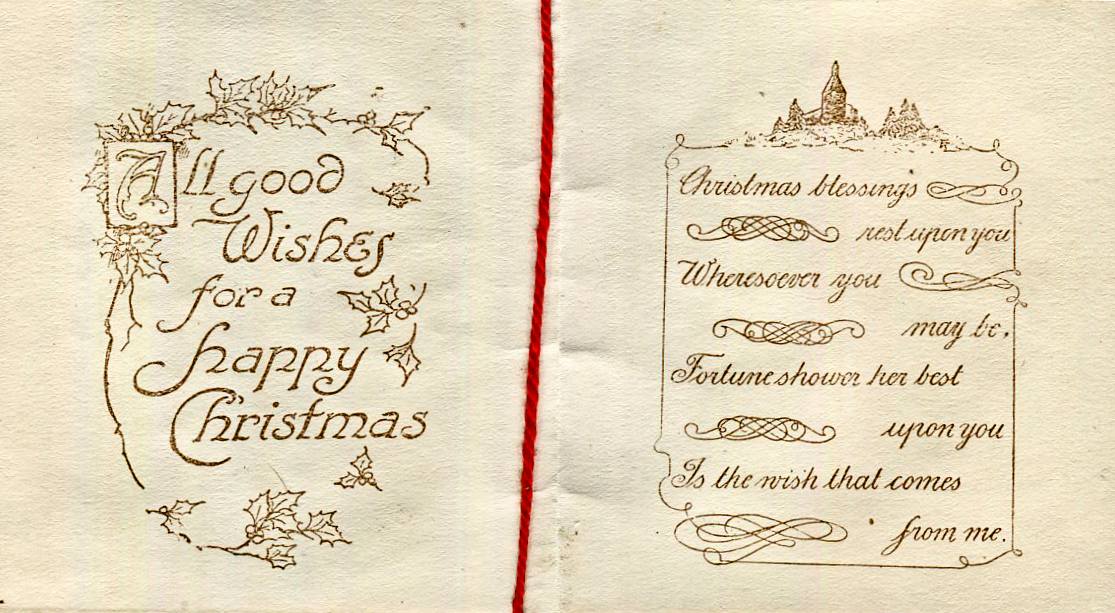 All good
Wishes
for a
happy
Christmas
Christmas blessings
rest upon you
Wheresoever you
may be,
Fortune shower her best
upon you
Is the wish that comes
from me.